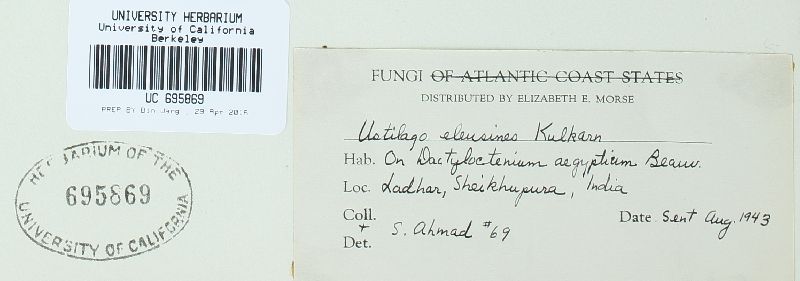 UNIVERSITY HERBARIUM
University of California
Berkeley
UC 695869
PREP BY Bin Jang , 29 Apr 2015
HERBARIUM OF THE
695869
UNIVERSITY OF CALIFORNIA
FUNGI OF ATLANTIC COAST STATES
DISTRIBUTED BY ELIZABETH E. MORSE
Ustilago eleusines Kulkarn
Hab. On Dactyloctenium aegyptium Beauv.
Loc. Ladhar, Sheikhupura, India
Coll. + Det. S. Ahmad #69 Date Sent Aug. 1943